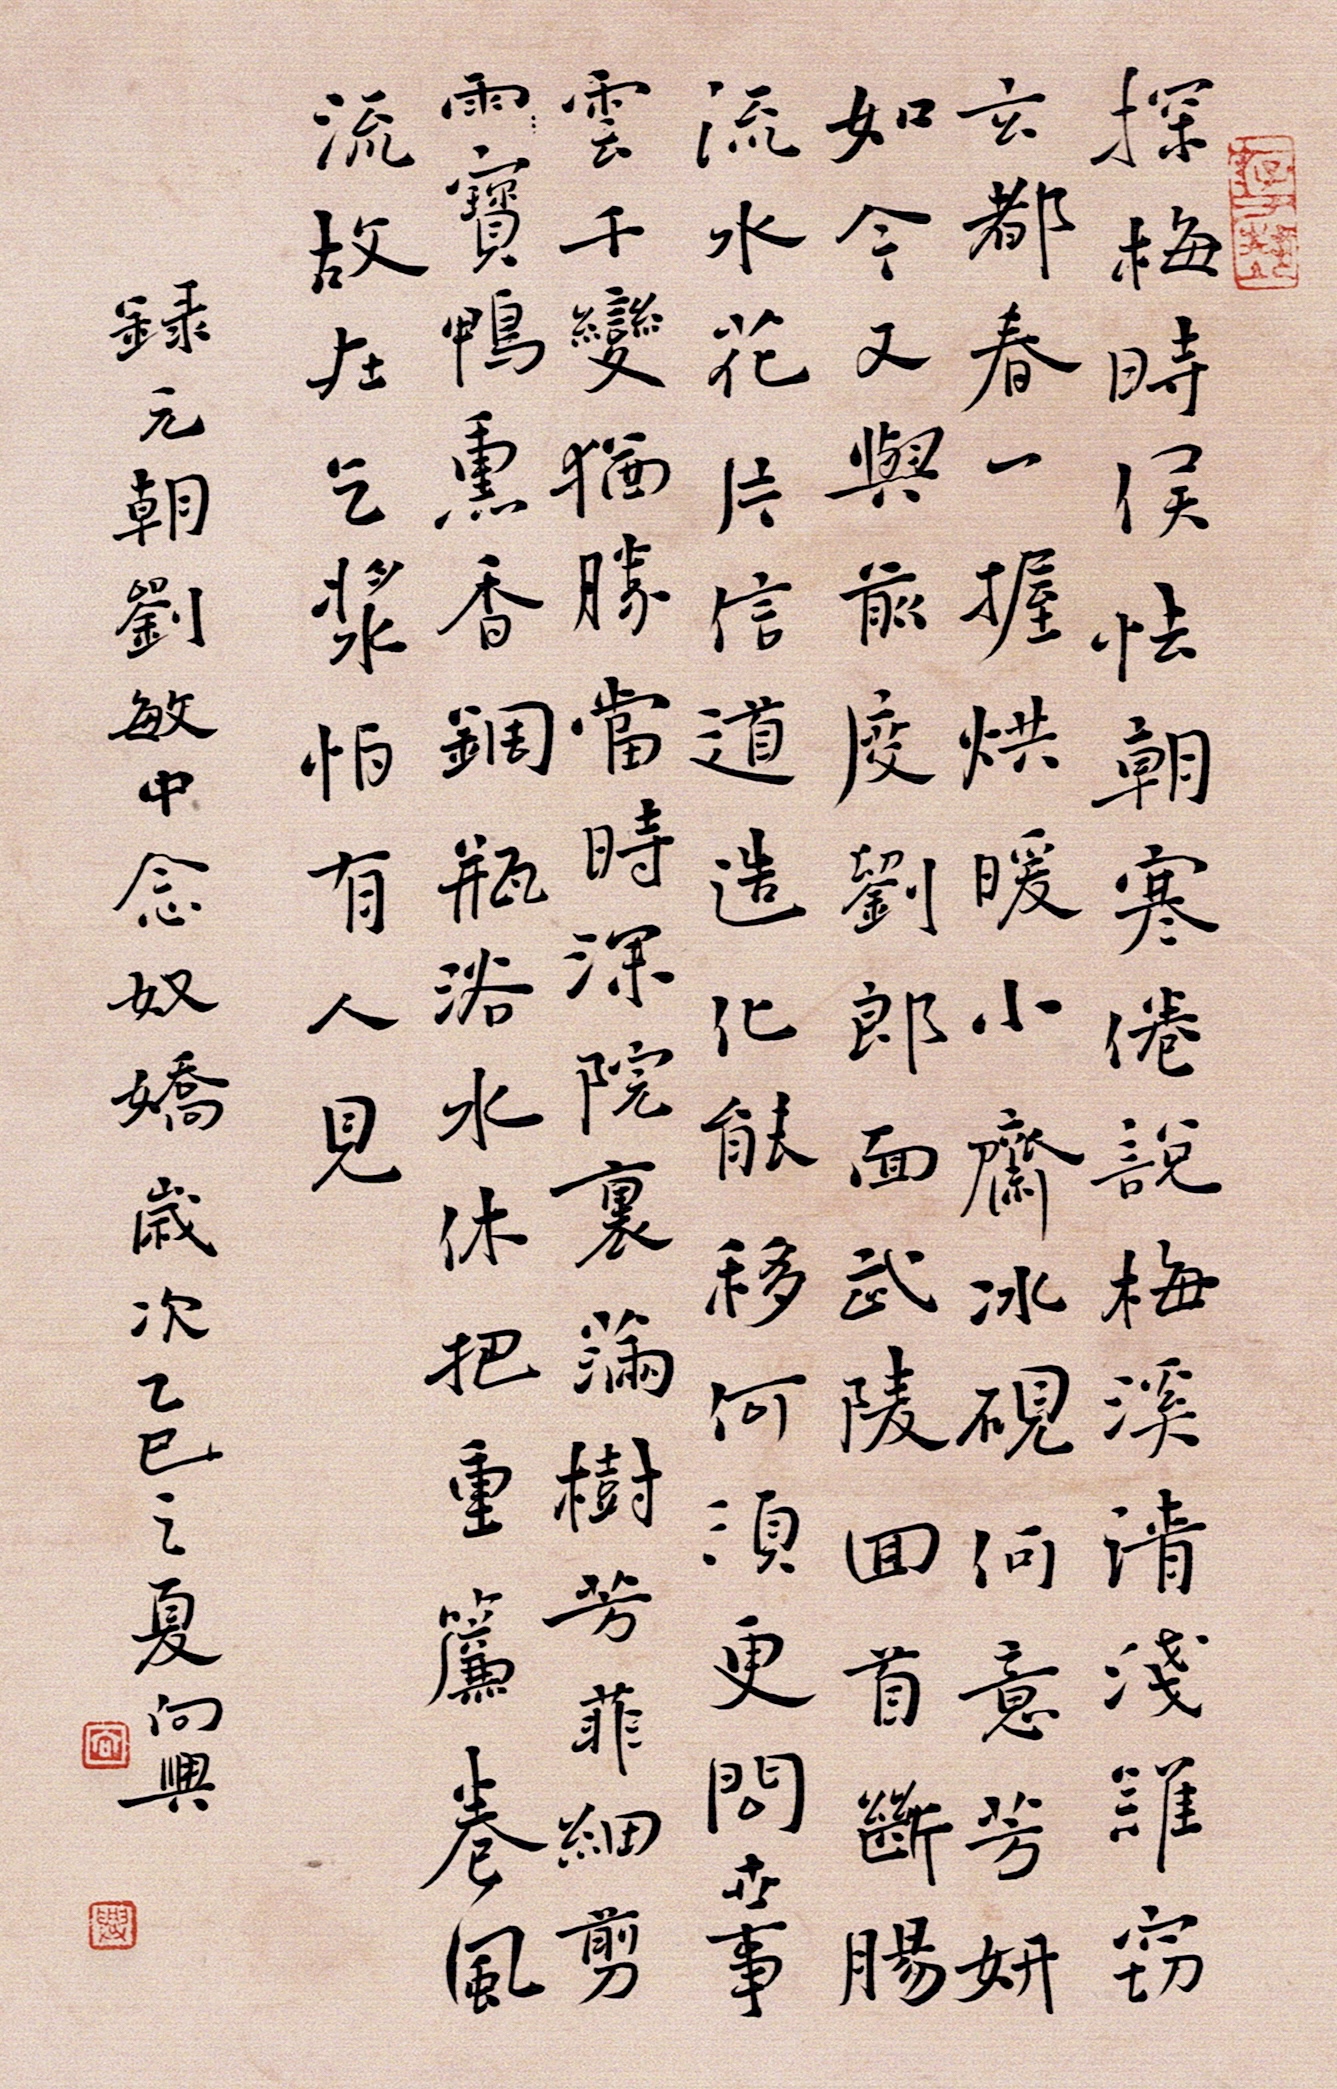 探梅時候怯朝寒倦說梅溪清淺誰窃
玄都春一握烘暖小齋冰硯何意芳妍
如今又與前度劉郎面武陵回首斷腸
流水花片信道造化能移何須更問世事
雲千變猶勝當時深院裏滿樹芳菲細剪
雨寶鴨熏香錮瓶浴水休把重簾卷風
流故在乞漿怕有人見
錄元朝劉敏中念奴嬌歲次乙巳之夏向興
向
興